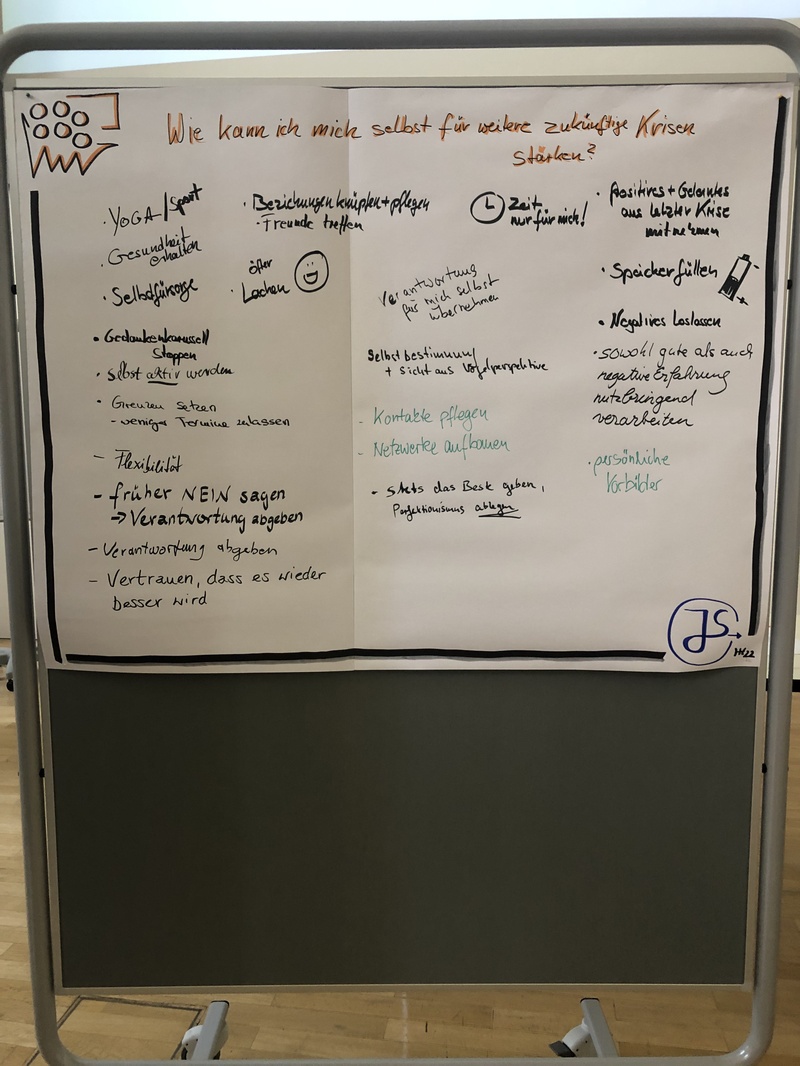 Wie kann ich mich selbst für weitere zukünftige Krisen
stärken?
· YOGA/Sport
· Gesundheit
erhalten
· Selbstfürsorge
• Gedankenkarussell
Stoppen
• Selbst aktiv werden
• Grenzen setzen
- weniger Termine zulassen
- Flexibilität
- früher NEIN sagen
→ Verantwortung abgeben
- Verantwortung abgeben
- Vertrauen, dass es wieder
besser wird
· Beziehungen knüpfen + pflegen
- Freunde treffen
öfter
· Lachen
Zeit
nur für mich!
Verantwortung
für mich selbst
übernehmen
Selbstbestimmung
+ Sicht aus Vogelperspektive
- Kontakte pflegen
- Netzwerke aufbauen
- stets das Beste geben,
Perfektionismus ablegen
· Positives + Gelerntes
aus letzter Krise
mitnehmen
• Speicher füllen
• Negatives Loslassen
· sowohl gute als auch
negative Erfahrung
nutzbringend
verarbeiten
· persönliche
Vorbilder
JS